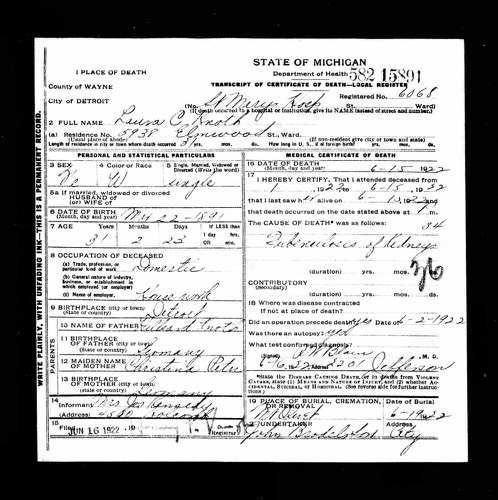 STATE OF MICHIGAN
Department of Health 582 15891
1 PLACE OF DEATH
County of WAYNE
TRANSCRIPT OF CERTIFICATE OF DEATH—LOCAL REGISTER
City of DETROIT
Registered No. 6068
(No. St Marys Hosp St. Ward)
(If death occurred in a hospital or institution, give its NAME instead of street and number.)
2 FULL NAME Laura C Knoth
(a) Residence No. 5938 Elmwood St., Ward.
(Usual place of abode) (If non-resident give city or town and state)
Length of residence in city or town where death occurred 31 yrs. mos. ds. How long in U. S., if of foreign birth? yrs. mos. ds.
WRITE PLAINLY, WITH UNFADING INK—THIS IS A PERMANENT RECORD.
PERSONAL AND STATISTICAL PARTICULARS
3 SEX 4 Color or Race 5 Single, Married, Widowed or Divorced (Write the word)
W Single
5a If married, widowed or divorced
HUSBAND of
(or) WIFE of
6 DATE OF BIRTH My 22-1891
(Month, day and year)
7 AGE Years Months Days If LESS than 1 day
31 23 hrs. OR min.
8 OCCUPATION OF DECEASED
(a) Trade, profession, or particular kind of work Domestic
(b) General nature of industry, business, or establishment in which employed (or employer)
(c) Name of employer House work
9 BIRTHPLACE (city or town) Detroit
(State or country)
PARENTS
10 NAME OF FATHER
11 BIRTHPLACE OF FATHER (city or town)
(State or country) Germany
12 MAIDEN NAME OF MOTHER Christina
13 BIRTHPLACE OF MOTHER (city or town)
(State or country) Germany
14 Informant Mrs Jos Kennedy
(Address)
15 Filed JUN 16 1922 , 19
Registrar
MEDICAL CERTIFICATE OF DEATH
16 DATE OF DEATH 6-15-1922
(Month, day and year)
17 I HEREBY CERTIFY, That I attended deceased from
1922 to 6-15-1922
that I last saw h alive on 1922 and
that death occurred on the date stated above at m.
The CAUSE OF DEATH* was as follows: 34
Tuberculosis of Kidneys
(duration) yrs. mos. ds.
CONTRIBUTORY
(Secondary)
(duration) yrs. mos. ds.
18 Where was disease contracted
if not at place of death?
Did an operation precede death? yes Date of 6-2-1922
Was there an autopsy? yes
What test confirmed diagnosis?
M. D.
Jefferson
*State the Disease Causing Death, or in deaths from Violent Causes, state (1) Means and Nature of Injury, and (2) whether Accidental, Suicidal, or Homicidal. (See reverse side for further instructions.)
19 PLACE OF BURIAL, CREMATION, OR REMOVAL Date of Burial
Mt Olivet 6-19-1922
20 UNDERTAKER Address
John City